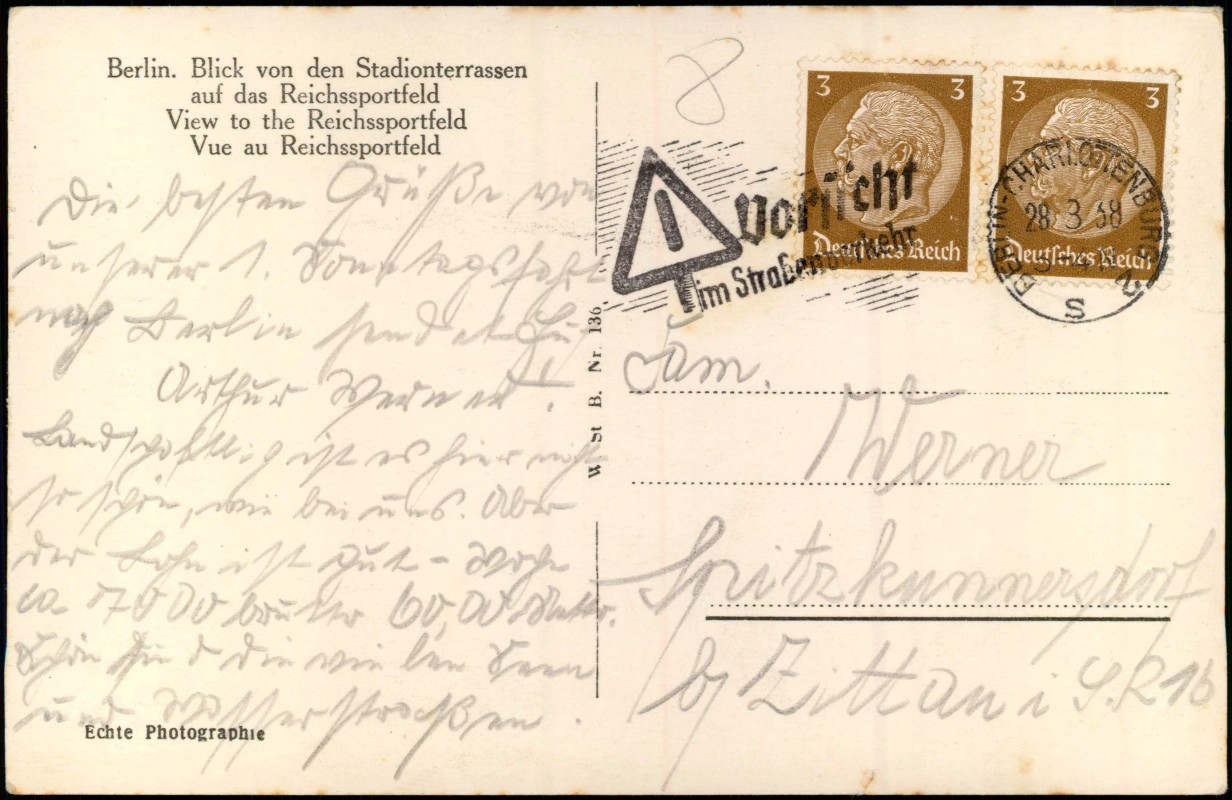 Berlin. Blick von den Stadionterrassen
auf das Reichssportfeld
View to the Reichssportfeld
Vue au Reichssportfeld
Die besten Grüße von
unserer 1. Sonntagsfahrt
nach Berlin sendet Euch
Arthur Werner.
Landschaftlich ist es hier nicht
so schön, wie bei uns. Aber
der Lohn ist gut – Woche
ca 70 00 brutto 60,00 Netto.
Schön sind die vielen Seen
und Wasserstraßen.
Echte Photographie
W St B. Nr. 136
8
3 3
Deutsches Reich
3 3
Deutsches Reich
Vorsicht
im Straßenverkehr
BERLIN-CHARLOTTENBURG 2
28 3 38
S
Fam.
Werner
Spitzkunnersdorf
b/ Zittau i S. 216